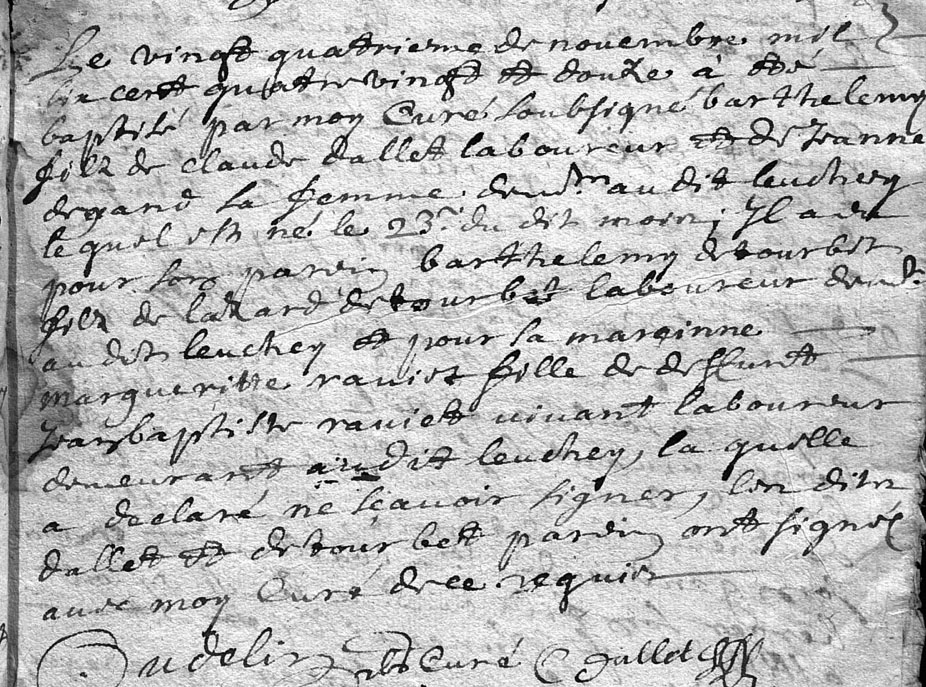 Le vingt quatrieme de novembre mil
six cent quatre vingt et douze à été
baptisé par moy Curé soubsigné barthelemy
filz de claude dallet laboureur et de Jeanne
degand sa femme demt au dit leuchey
lequel est né le 23e du dit mois, Il a eu
pour son parein barthelemy detourbet
filz de lazard detourbet laboureur demt
au dit leuchey et pour sa marainne
margueritte raviet fille de deffunt
Jean baptiste raviet vivant laboureur
demeurant audit leuchey, la quelle
a declaré ne sçavoir signer, les dits
dallet et detourbet parein ont signé
avec moy Curé de ce requis
Curé C dallet